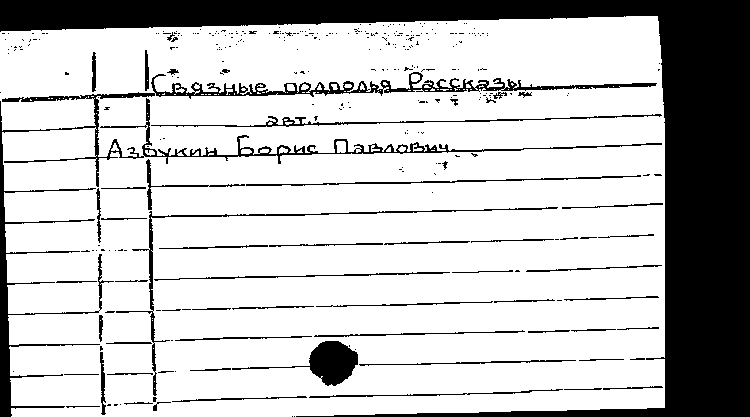 Связные подполья Рассказы.
авт.:
Азбукин, Борис Павлович.